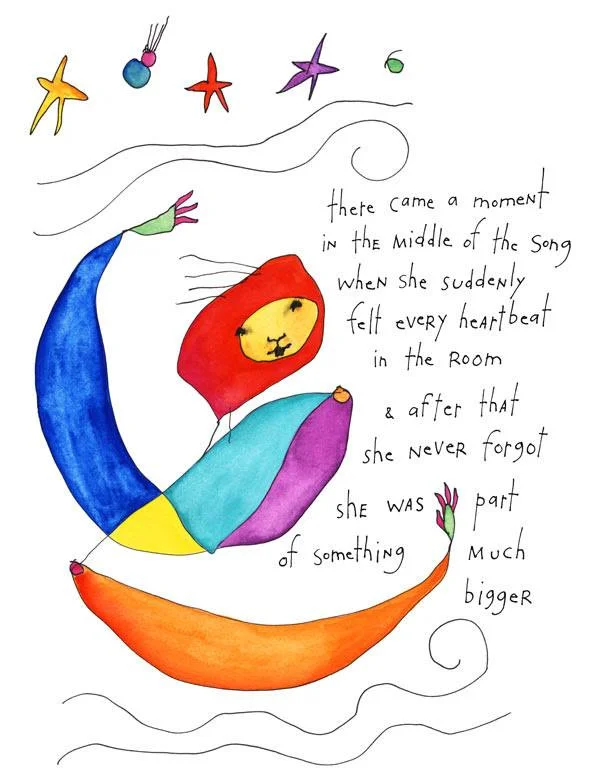 there came a moment
in the middle of the song
when she suddenly
felt every heartbeat
in the room
& after that
she never forgot
she was part
of something much
bigger